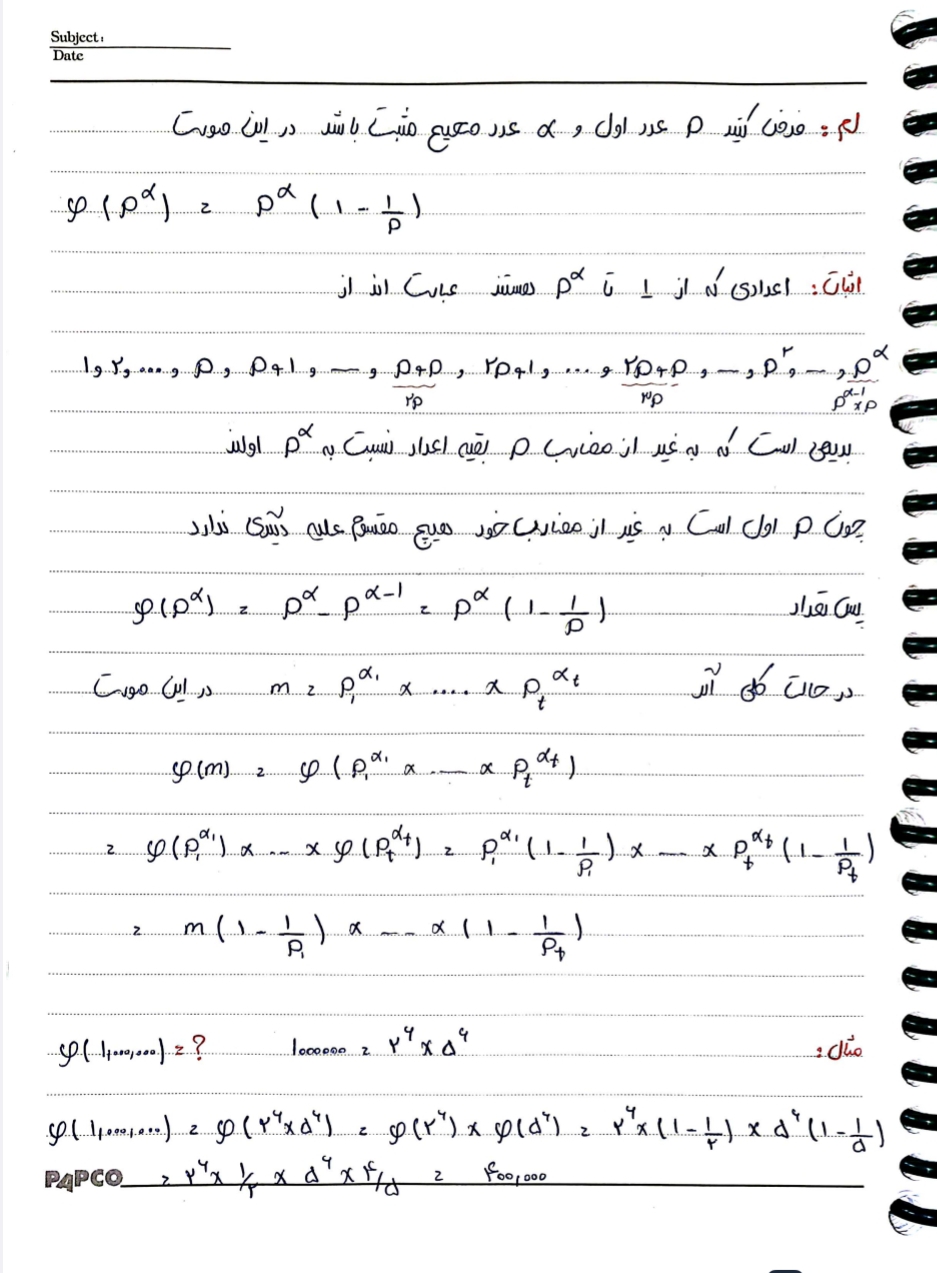 Subject:
Date
لم: فرض کنید p عدد اول و α عدد صحیح مثبت باشد در این صورت
φ(p^α) = p^α (1 - 1/p)
اثبات: اعدادی که از 1 تا p^α هستند عبارت اند از
1 و 2 و .... و p و p+1 و — و p+p و 2p+1 و ... و 2p+p و — و p^۲ و — و p^α
۲p ۳p p^α-1 × p
بدیهی است که به غیر از مضارب p بقیه اعداد نسبت به p^α اولند
چون p اول است به غیر از مضارب خود هیچ مقسوم علیه دیگری ندارد
پس تعداد φ(p^α) = p^α - p^α-1 = p^α (1 - 1/p)
در حالت کلی اگر m = p₁^α₁ × .... × p_t^α_t در این صورت
φ(m) = φ(p₁^α₁ × .— × p_t^α_t)
= φ(p₁^α₁) × -- × φ(p_t^α_t) = p₁^α₁ (1 - 1/p₁) × — × p_t^α_t (1 - 1/p_t)
= m (1 - 1/p₁) × -- × (1 - 1/p_t)
مثال: 1000000 = ۲^۶ × ۵^۶ φ(1,000,000) = ?
φ(1,000,000) = φ(۲^۶ × ۵^۶) = φ(۲^۶) × φ(۵^۶) = ۲^۶ × (1 - 1/۲) × ۵^۶ (1 - 1/۵)
= ۲^۶ × 1/۲ × ۵^۶ × ۴/۵ = ۴00,000
PAPCO